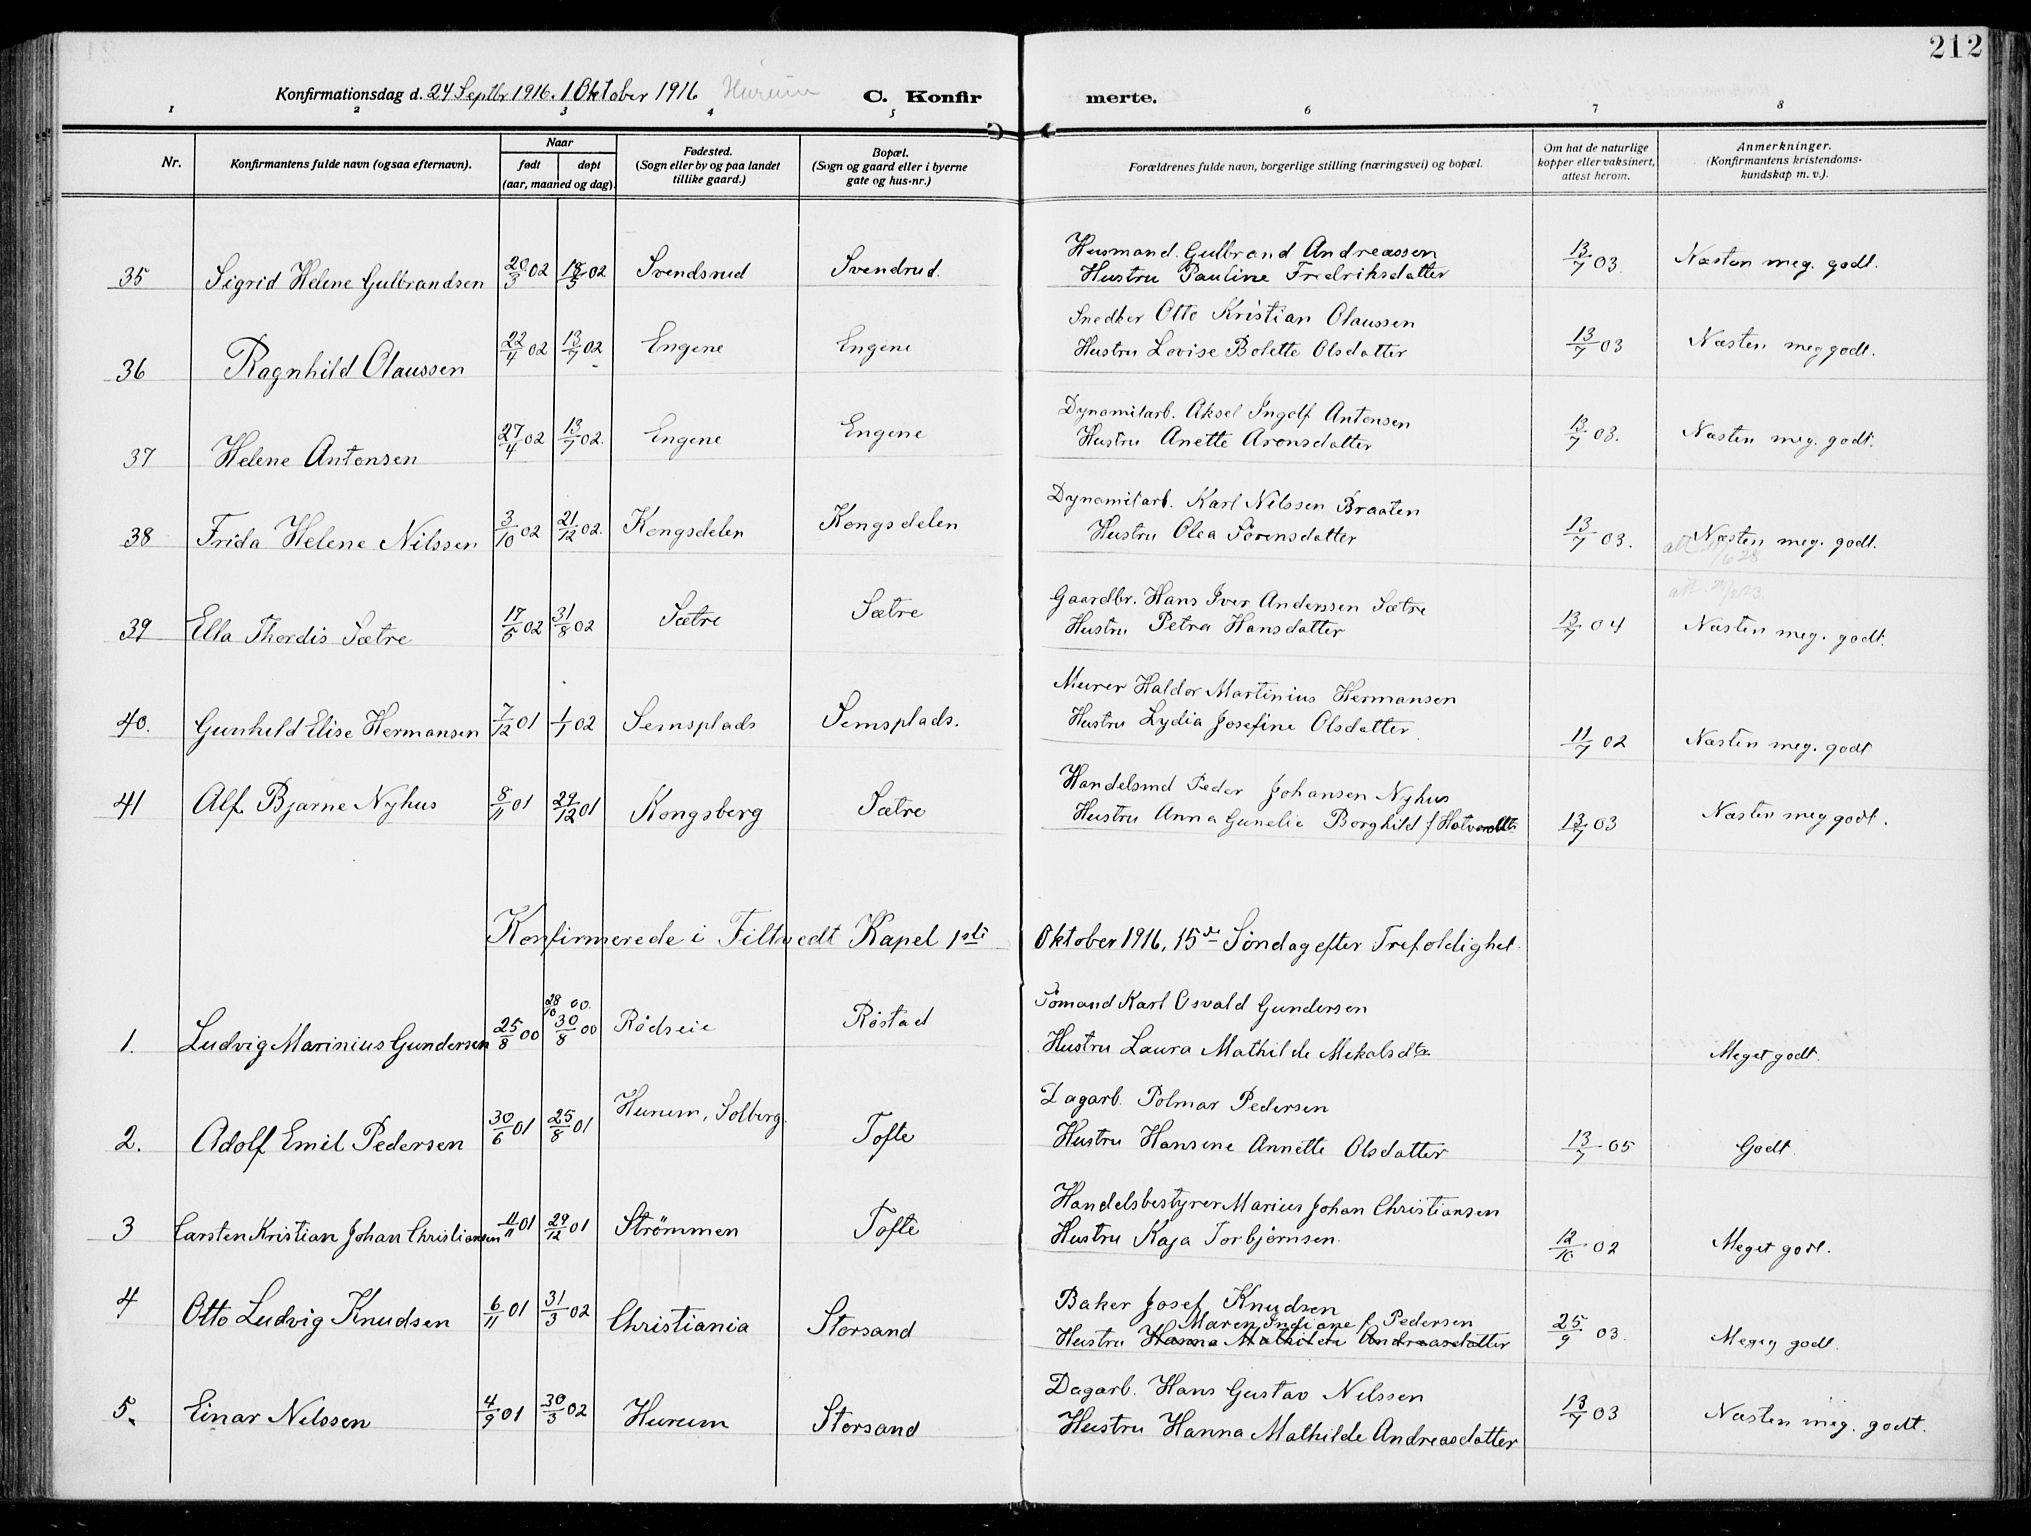 212
Konfirmationsdag d. 24 Septbr 1916. 1 Oktober 1916 Hurum C. Konfir merte.
1 2 3 4 5 6 7 8
Nr. Konfirmantens fulde navn (ogsaa efternavn). Naar født døpt (aar, maaned og dag). Fødested. (Sogn eller by og paa landet tillike gaard.) Bopæl. (Sogn og gaard eller i byerne gate og hus-nr.) Forældrenes fulde navn, borgerlige stilling (næringsvei) og bopæl. Om hat de naturlige kopper eller vaksinert, attest herom. Anmerkninger. (Konfirmantens kristendoms-kundskap m. v.).
35 Sigrid Helene Gulbrandsen 20/3 02 18/5 02 Svendsrud Svendrud. Husmand. Gulbrand Andreassen
Hustru Pauline Fredriksdatter 13/7 03. Næsten meg. godt.
36 Ragnhild Olaussen 22/4 02 13/7 02 Engene Engene Snedker Otto Kristian Olaussen
Hustru Lovise Bolette Olsdatter 13/7 03 Næsten meg godt.
37 Helene Antonsen 27/4 02 13/7 02. Engene Engene Dynamitarb. Aksel Ingolf Antonsen
Hustru Anette Aronsdatter 13/7 03. Næsten meg. godt.
38 Frida Helene Nilssen 3/10 02 21/12 02. Kongsdelen Kongsdelen Dynamitarb. Karl Nilssen Braaten
Hustru Olea Sörensdatter 13/7 03. Næsten meg. godt.
39 Ella Thordis Sætre 17/5 02 31/8 02 Sætre Sætre Gaardbr. Hans Iver Anderssen Sætre
Hustru Petra Hansdatter 13/7 04 Næsten meg. godt.
40. Gunhild Elise Hermansen 7/12 01 1/1 02 Semsplads Semsplads. Murer Haldor Martinius Hermansen
Hustru Lydia Josefine Olsdatter. 11/7 02 Næsten meg. godt
41 Alf Bjarne Nyhus 8/11 01 29/12 01 Kongsberg Sætre Handelsmd Peder Johansen Nyhus
Hustru Anna Gunelie Borghild f 13/7 03 Næsten meg godt.
Konfirmerede i Filtvedt Kapel 1ste Oktober 1916, 15de Söndag efter Trefoldighet.
1. Ludvig Marinius Gundersen 25/8 00 28/10 00. 30/8 00 Rødseie Røstad Sömand Karl Osvald Gundersen
Hustru Laura Mathilde Mekalsdtr. Meget godt.
2. Adolf Emil Pedersen 30/6 01 25/8 01 Hurum, Solberg. Tofte Dagarb. Polmar Pedersen
Hustru Hansine Annette Olsdatter 13/7 05 Godt.
3 Carsten Kristian Johan Christiansen 4/11 01 29/12 01 Strømmen Tofte Handelsbestyrer Marius Johan Christiansen
Hustru Kaja Torbjørnsen. 12/10 02 Meget godt.
4 Otto Ludvig Knudsen 6/11 01 31/3 02 Christiania Storsand Baker Josef Knudsen
Maren Indiane f Pedersen
Hustru Hanna Mathilde Andreasdatter 25/9 03. Meget godt.
5. Einar Nilssen 4/9 01 30/3 02 Hurum Storsand Dagarb. Hans Gustav Nilssen
Hustru Hanna Mathilde Andreasdatter 13/7 03 Næsten meg. godt.